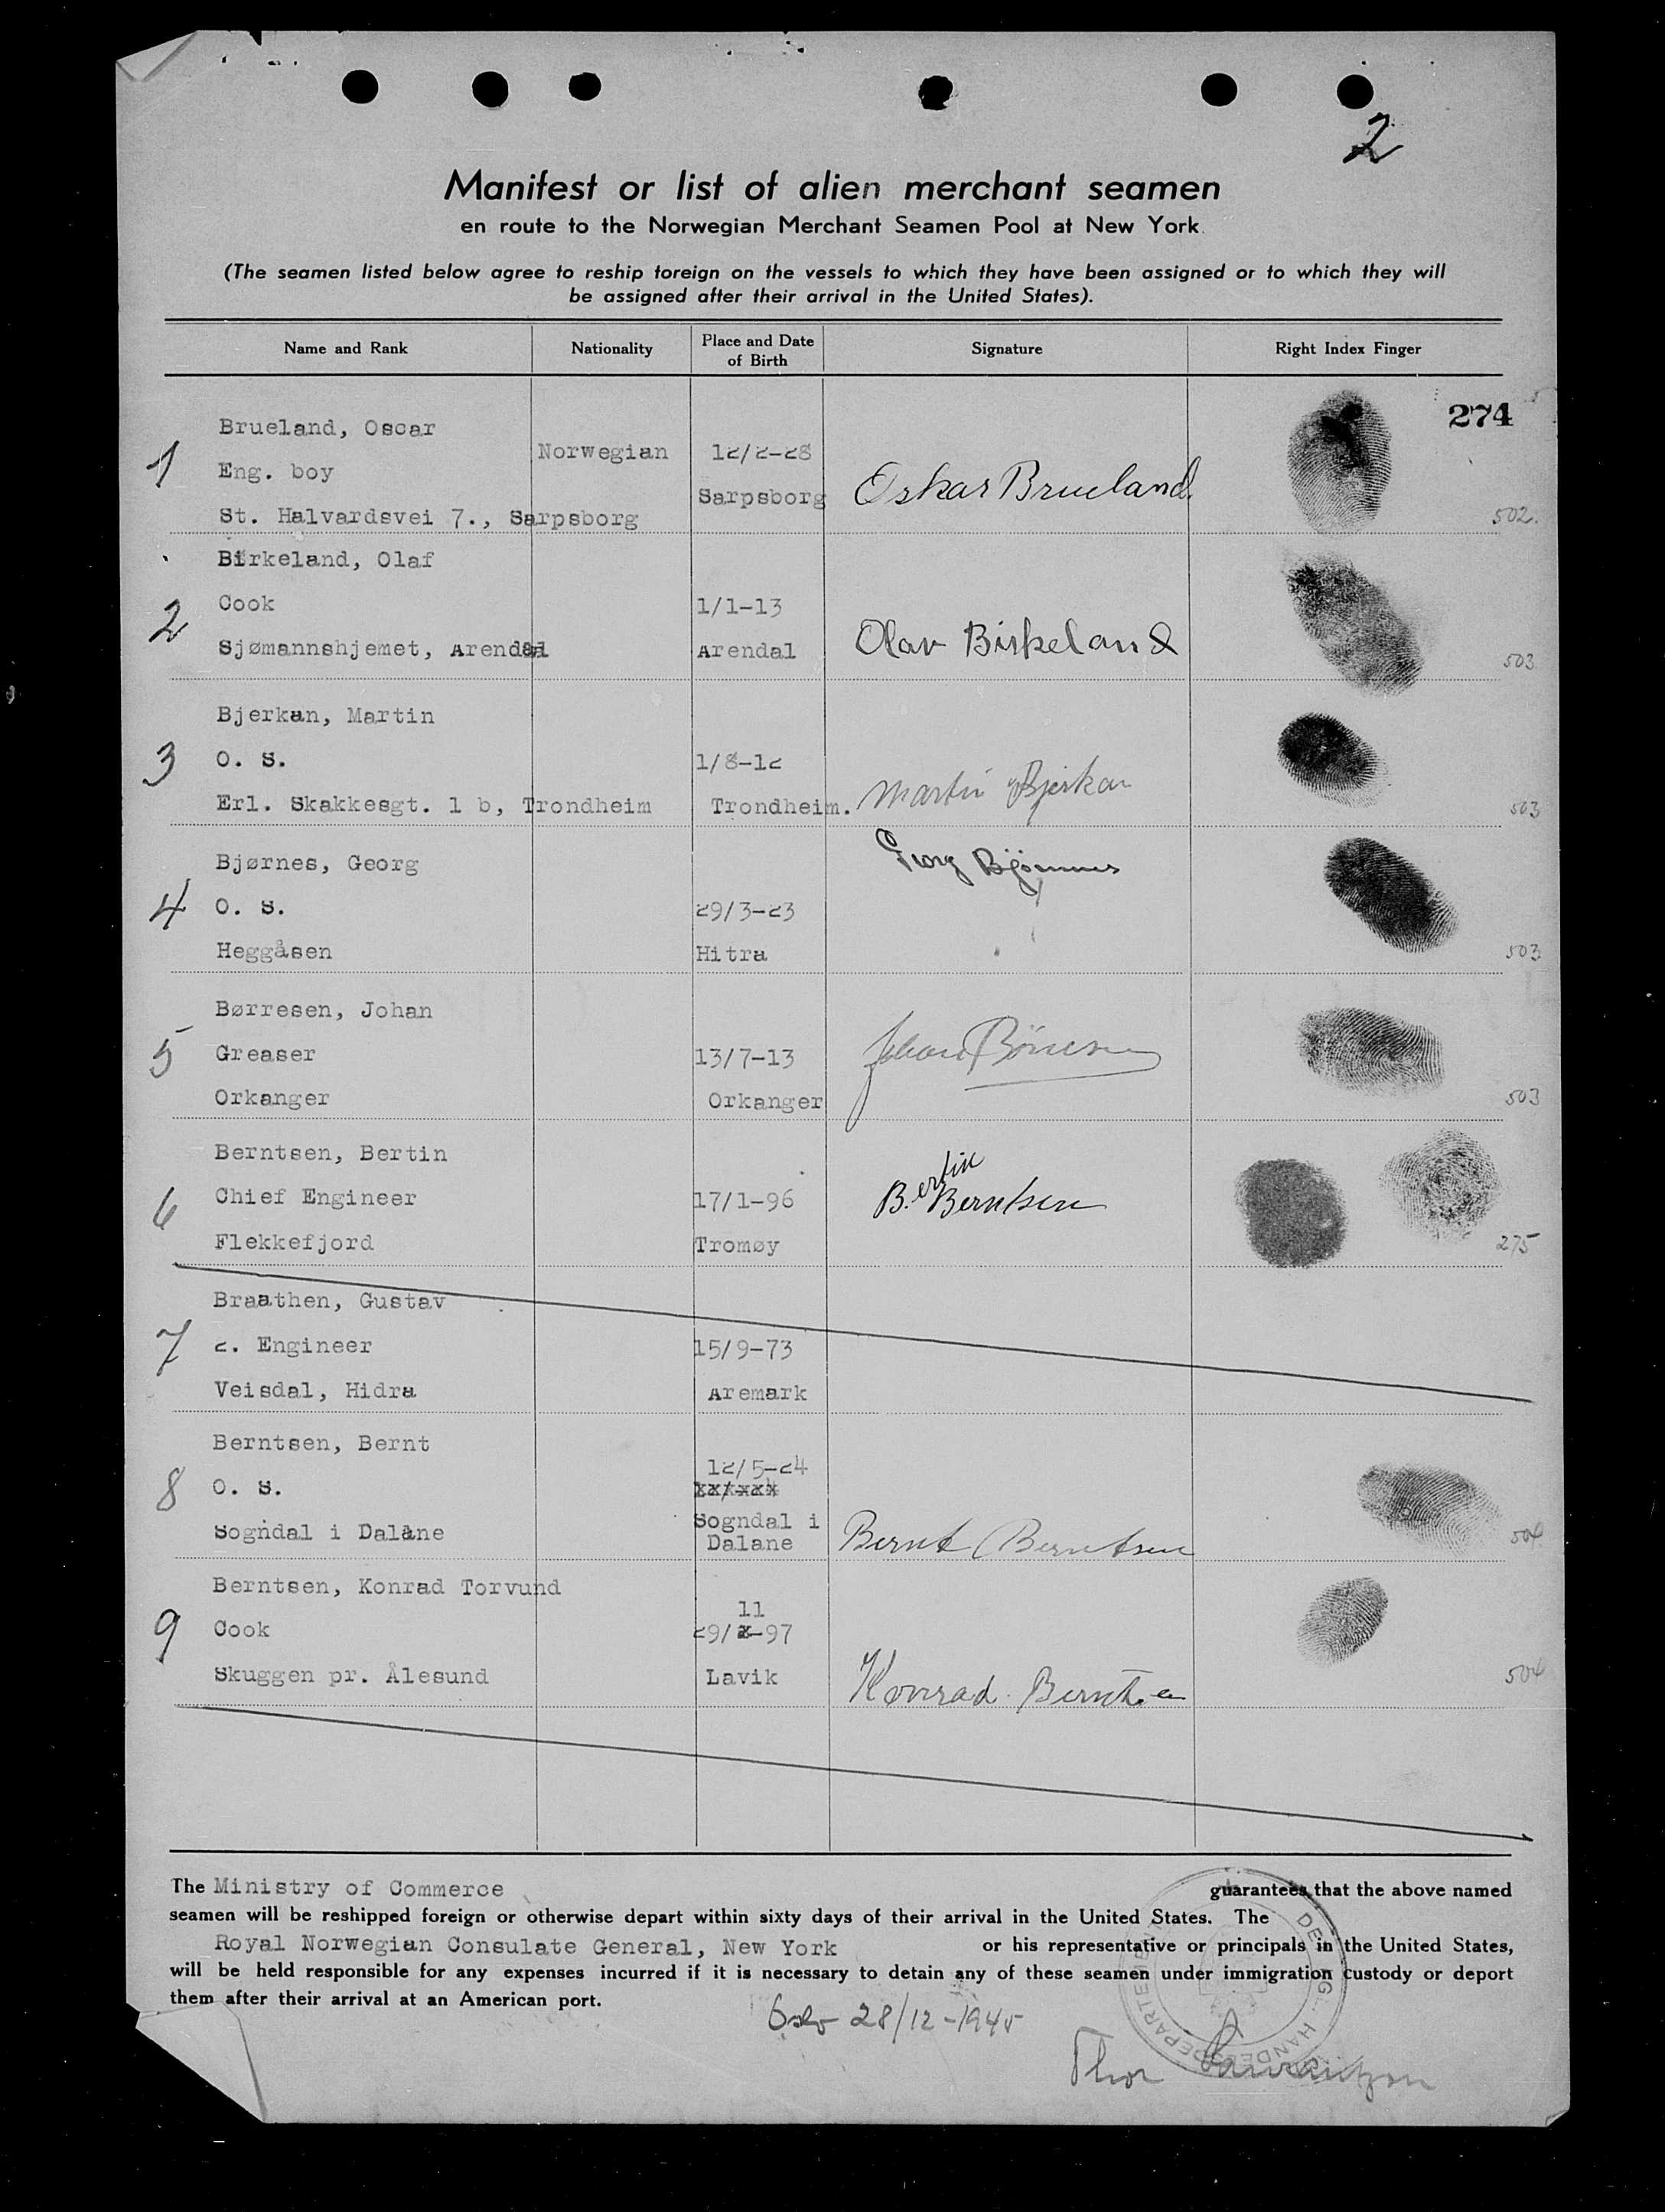 2
Manifest or list of alien merchant seamen
en route to the Norwegian Merchant Seamen Pool at New York.
(The seamen listed below agree to reship foreign on the vessels to which they have been assigned or to which they will
be assigned after their arrival in the United States).
Name and Rank Nationality Place and Date of Birth Signature Right Index Finger
274
Brueland, Oscar
Norwegian 12/2-28
1 Eng. boy
Sarpsborg Oskar Brueland.
St. Halvardsvei 7., Sarpsborg 502.
Birkeland, Olaf
2 Cook 1/1-13
Sjømannshjemet, Arendal Arendal Olav Birkeland 503
Bjerkan, Martin
3 O. S. 1/8-12
Erl. Skakkesgt. 1 b, Trondheim Trondheim. Martin Bjerkan 503
Bjørnes, Georg Georg Bjørnnes
4 O. S. 29/3-23
Heggåsen Hitra 503
Børresen, Johan
5 Greaser 13/7-13 Johan Børresen
Orkanger Orkanger 503
Berntsen, Bertin
6 Chief Engineer 17/1-96 B. Bertin Berntsen
Flekkefjord Tromøy 275
Braathen, Gustav
7 2. Engineer 15/9-73
Veisdal, Hidra Aremark
Berntsen, Bernt
12/5-24
8 O. S.
Sogndal i Dalane Sogndal i Dalane Bernt Berntsen 504
Berntsen, Konrad Torvund
11
9 Cook 29/x-97
Skuggen pr. Ålesund Lavik Konrad Berntsen 504
The Ministry of Commerce guarantees that the above named
seamen will be reshipped foreign or otherwise depart within sixty days of their arrival in the United States. The
Royal Norwegian Consulate General, New York or his representative or principals in the United States,
will be held responsible for any expenses incurred if it is necessary to detain any of these seamen under immigration custody or deport
them after their arrival at an American port.
Oslo 28/12-1945
DET KG. HANDELSDEPARTEMENT
Thor